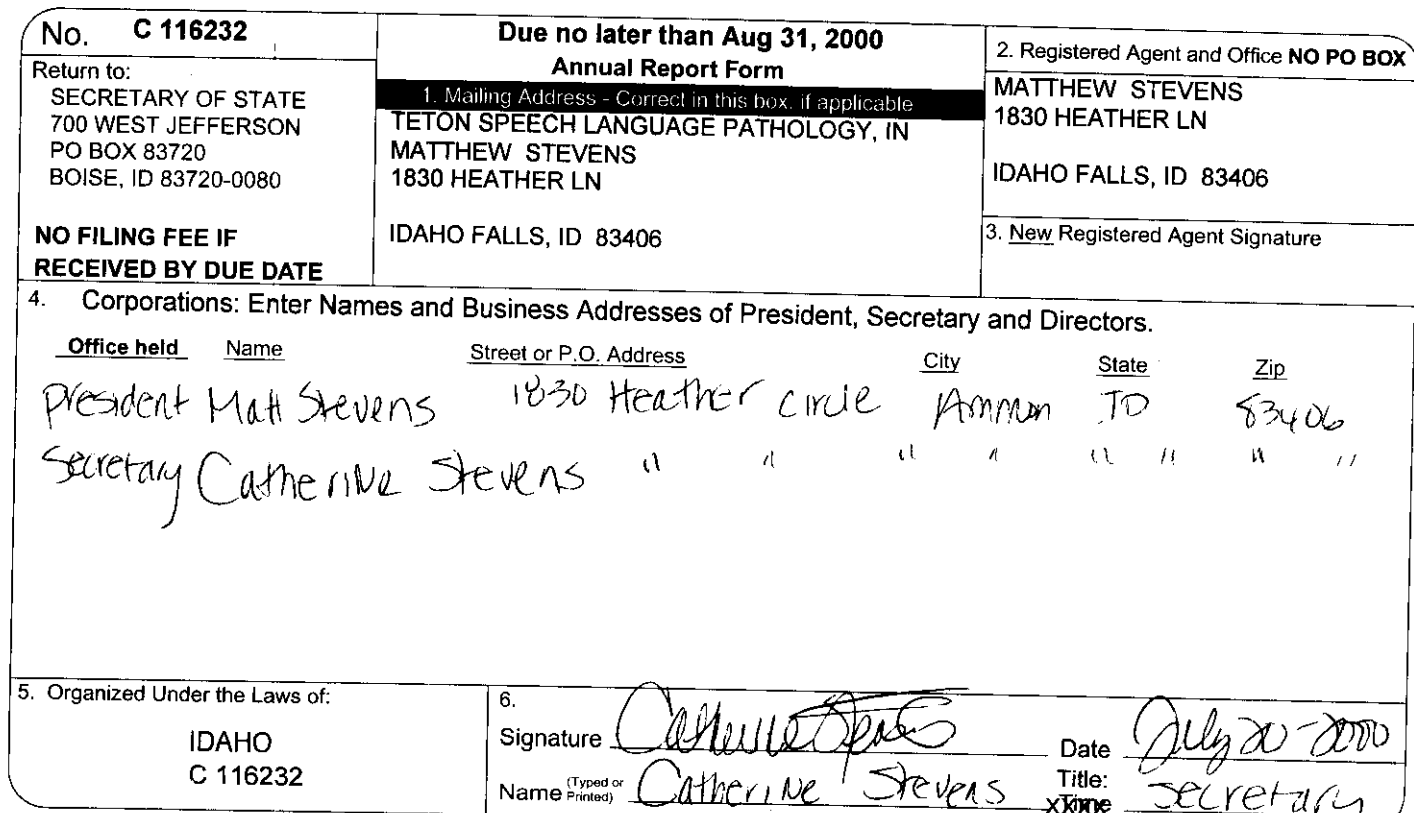 No. C 116232
Return to:
SECRETARY OF STATE
700 WEST JEFFERSON
PO BOX 83720
BOISE, ID 83720-0080
NO FILING FEE IF
RECEIVED BY DUE DATE
Due no later than Aug 31, 2000
Annual Report Form
1. Mailing Address - Correct in this box, if applicable
TETON SPEECH LANGUAGE PATHOLOGY, IN
MATTHEW STEVENS
1830 HEATHER LN
IDAHO FALLS, ID 83406
2. Registered Agent and Office NO PO BOX
MATTHEW STEVENS
1830 HEATHER LN
IDAHO FALLS, ID 83406
3. New Registered Agent Signature
4. Corporations: Enter Names and Business Addresses of President, Secretary and Directors.
Office held Name Street or P.O. Address City State Zip
president Matt Stevens 1830 Heather circle Ammon ID 83406
Secretary Catherine Stevens " " " " " " " "
5. Organized Under the Laws of:
IDAHO
C 116232
6.
Signature Catherine Stevens Date July 20-2000
Name (Typed or Printed) Catherine Stevens Title: secretary